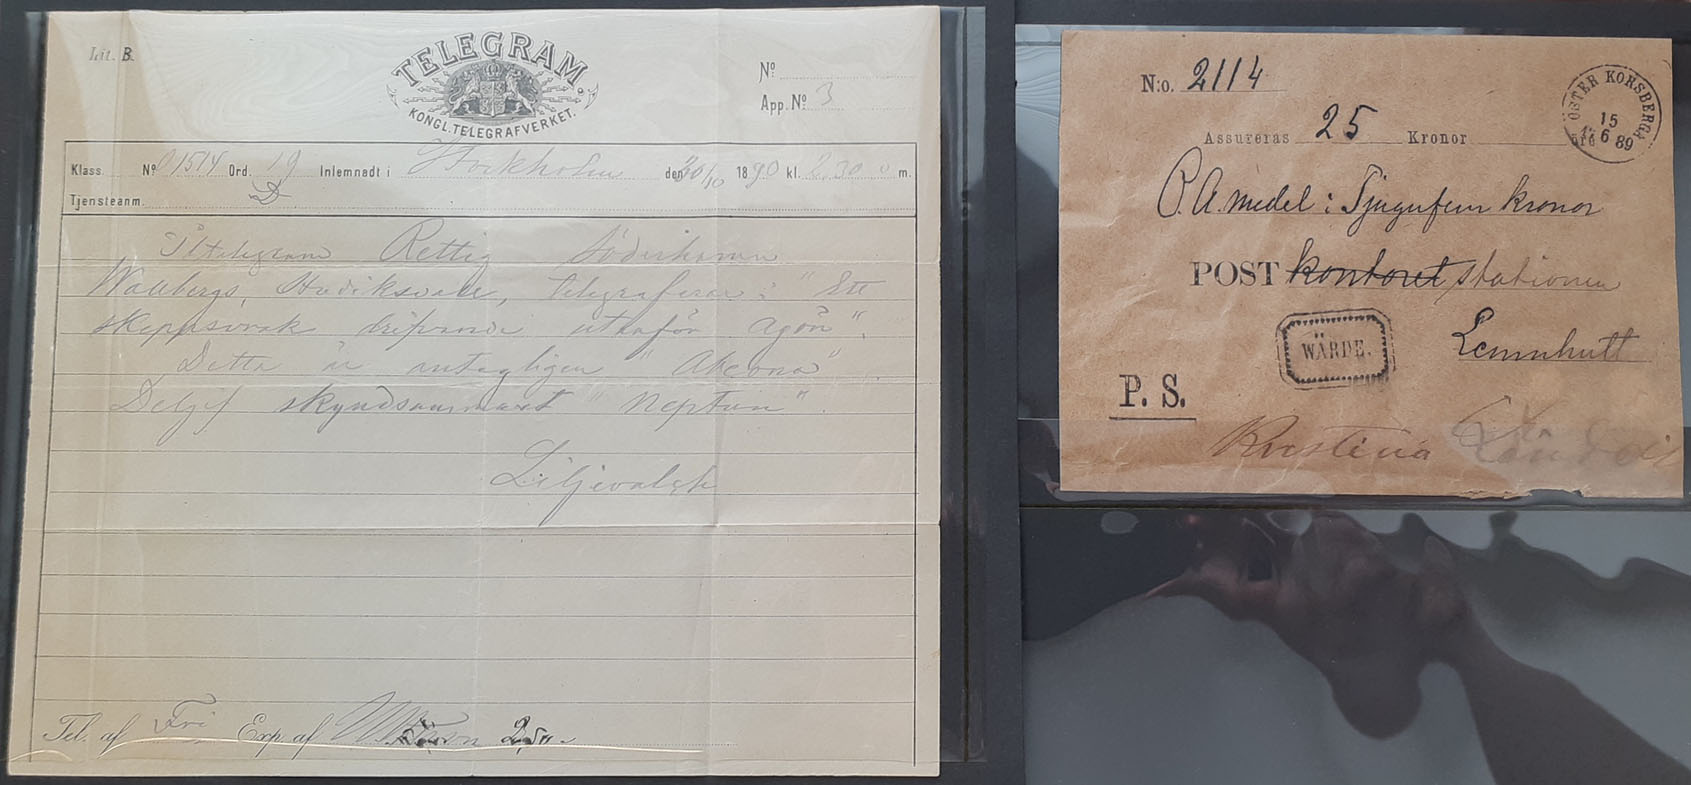 Lit. B.
TELEGRAM
KONGL. TELEGRAFVERKET.
Nº
App. Nº 3
Klass Nº 01514 Ord. 19 Inlemnadt i Stockholm den 30/10 1890 kl. 2.30 m.
Tjensteanm. D
Iltelegram Rettig Söderhamn
Wallbergs, Hudiksvall, telegraferar: "Ett
skeppsvrak drifvande utanför Agön".
Detta är antagligen
skyndsammast "Neptun".
Liljevalch
Tel. af Exp. af
N:o. 2114
Assureras 25 Kronor öre
ÖSTER KORSBERGA
15
6 89
P. A. medel: Tjugufem kronor
POST kontoret stationen
Lemnhult
WÄRDE.
P. S.